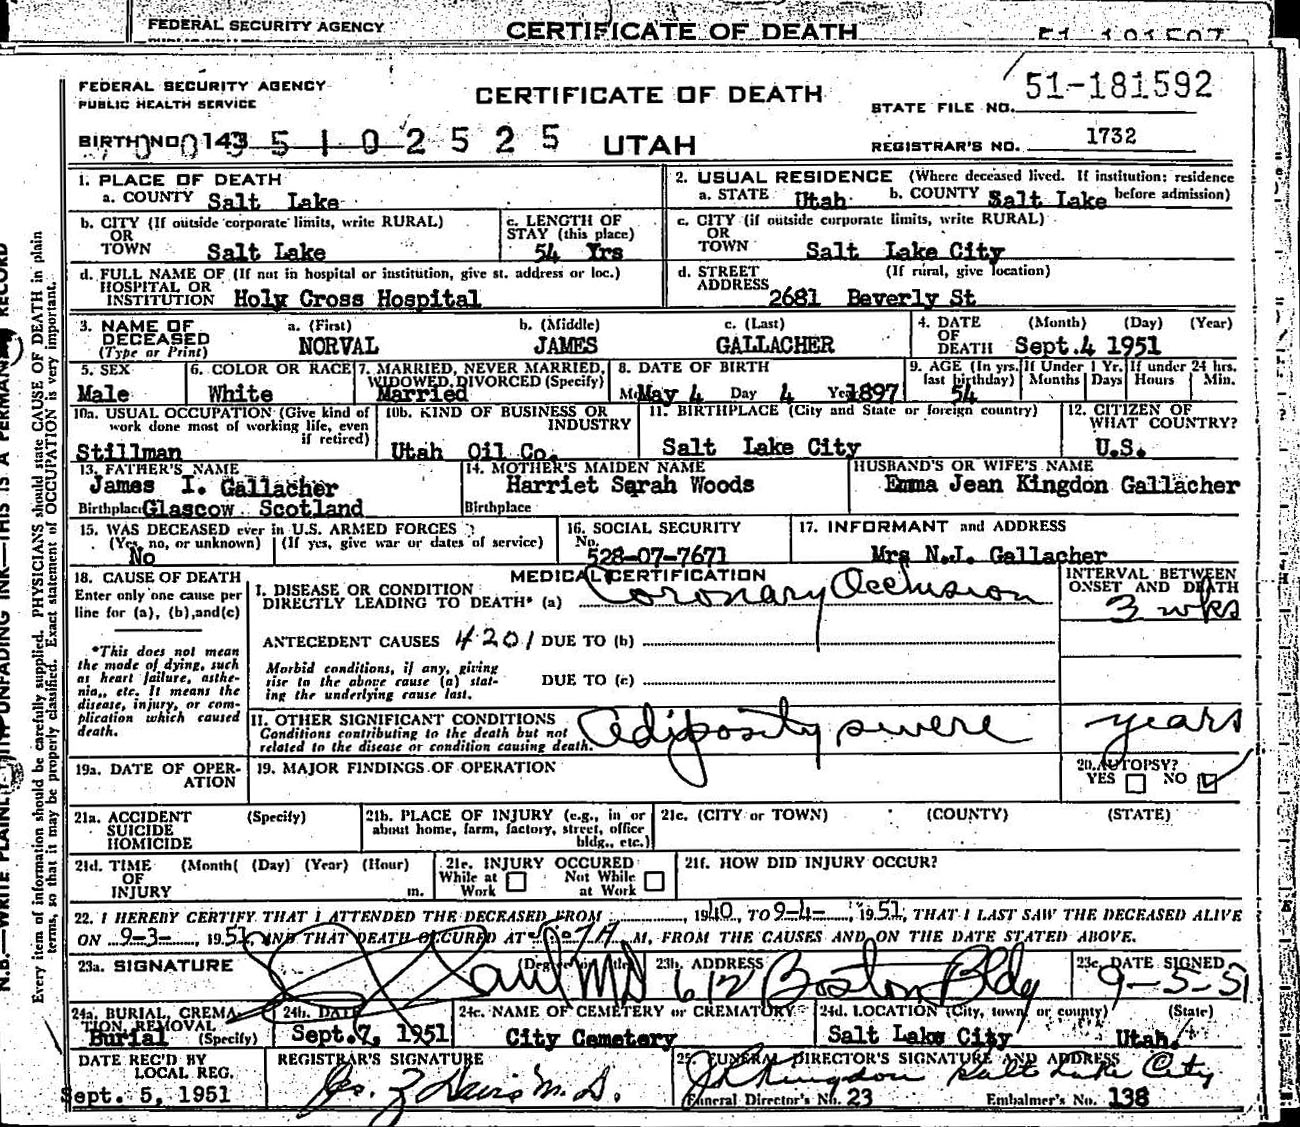 FEDERAL SECURITY AGENCY CERTIFICATE OF DEATH
FEDERAL SECURITY AGENCY
PUBLIC HEALTH SERVICE
CERTIFICATE OF DEATH
STATE FILE NO. 51-181592
BIRTH NO. 143 5102525 UTAH REGISTRAR'S NO. 1732
1. PLACE OF DEATH
a. COUNTY Salt Lake
2. USUAL RESIDENCE (Where deceased lived. If institution: residence before admission)
a. STATE Utah b. COUNTY Salt Lake
b. CITY (If outside corporate limits, write RURAL) OR TOWN Salt Lake
c. LENGTH OF STAY (this place) 54 Yrs
c. CITY (if outside corporate limits, write RURAL) OR TOWN Salt Lake City
d. FULL NAME OF (If not in hospital or institution, give st. address or loc.) HOSPITAL OR INSTITUTION Holy Cross Hospital
d. STREET ADDRESS (If rural, give location) 2681 Beverly St
3. NAME OF DECEASED (Type or Print) a. (First) NORVAL b. (Middle) JAMES c. (Last) GALLACHER
4. DATE OF DEATH (Month) (Day) (Year) Sept.4 1951
5. SEX Male
6. COLOR OR RACE White
7. MARRIED, NEVER MARRIED, WIDOWED, DIVORCED (Specify) Married
8. DATE OF BIRTH May 4 Day 4 1897
9. AGE (In yrs. last birthday) 54 If Under 1 Yr. Months Days If under 24 hrs. Hours Min.
10a. USUAL OCCUPATION (Give kind of work done most of working life, even if retired) Stillman
10b. KIND OF BUSINESS OR INDUSTRY Utah Oil Co.
11. BIRTHPLACE (City and State or foreign country) Salt Lake City
12. CITIZEN OF WHAT COUNTRY? U.S.
13. FATHER'S NAME James I. Gallacher
Birthplace Glascow Scotland
14. MOTHER'S MAIDEN NAME Harriet Sarah Woods
Birthplace
HUSBAND'S OR WIFE'S NAME Emma Jean Kingdon Gallacher
15. WAS DECEASED ever in U.S. ARMED FORCES ?
(Yes, no, or unknown) (If yes, give war or dates of service)
No
16. SOCIAL SECURITY No. 528-07-7671
17. INFORMANT and ADDRESS Mrs N.J. Gallacher
18. CAUSE OF DEATH
Enter only one cause per line for (a), (b), and (c)
*This does not mean the mode of dying, such as heart failure, asthenia, etc. It means the disease, injury, or complication which caused death.
MEDICAL CERTIFICATION
I. DISEASE OR CONDITION DIRECTLY LEADING TO DEATH* (a) Coronary Occlusion
INTERVAL BETWEEN ONSET AND DEATH
3 wks
ANTECEDENT CAUSES 4201 DUE TO (b)
Morbid conditions, if any, giving rise to the above cause (a) stating the underlying cause last.
DUE TO (c)
II. OTHER SIGNIFICANT CONDITIONS
Conditions contributing to the death but not related to the disease or condition causing death.
Adiposity severe years
19a. DATE OF OPERATION
19. MAJOR FINDINGS OF OPERATION
20. AUTOPSY?
YES NO ✓
21a. ACCIDENT SUICIDE HOMICIDE (Specify)
21b. PLACE OF INJURY (e.g., in or about home, farm, factory, street, office bldg., etc.)
21c. (CITY or TOWN) (COUNTY) (STATE)
21d. TIME OF INJURY (Month( (Day) (Year) (Hour) m.
21e. INJURY OCCURED
While at Work Not While at Work
21f. HOW DID INJURY OCCUR?
22. I HEREBY CERTIFY THAT I ATTENDED THE DECEASED FROM 1940, TO 9-4-, 1951, THAT I LAST SAW THE DECEASED ALIVE
ON 9-3-, 1951, AND THAT DEATH OCCURED AT M, FROM THE CAUSES AND ON THE DATE STATED ABOVE.
23a. SIGNATURE (Degree or title) MD
23b. ADDRESS 612 Boston Bldg
23c. DATE SIGNED 9-5-51
24a. BURIAL, CREMATION, REMOVAL (Specify) Burial
24b. DATE Sept.7, 1951
24c. NAME OF CEMETERY or CREMATORY City Cemetery
24d. LOCATION (City, town, or county) (State) Salt Lake City Utah.
DATE REC'D BY LOCAL REG. Sept. 5, 1951
REGISTRAR'S SIGNATURE
25. FUNERAL DIRECTOR'S SIGNATURE AND ADDRESS Kingdon Salt Lake City
Funeral Director's No. 23 Embalmer's No. 138
N.B.—WRITE PLAINLY WITH UNFADING INK—THIS IS A PERMANENT RECORD
Every item of information should be carefully supplied. PHYSICIANS should state CAUSE OF DEATH in plain
terms, so that it may be properly classified. Exact statement of OCCUPATION is very important.